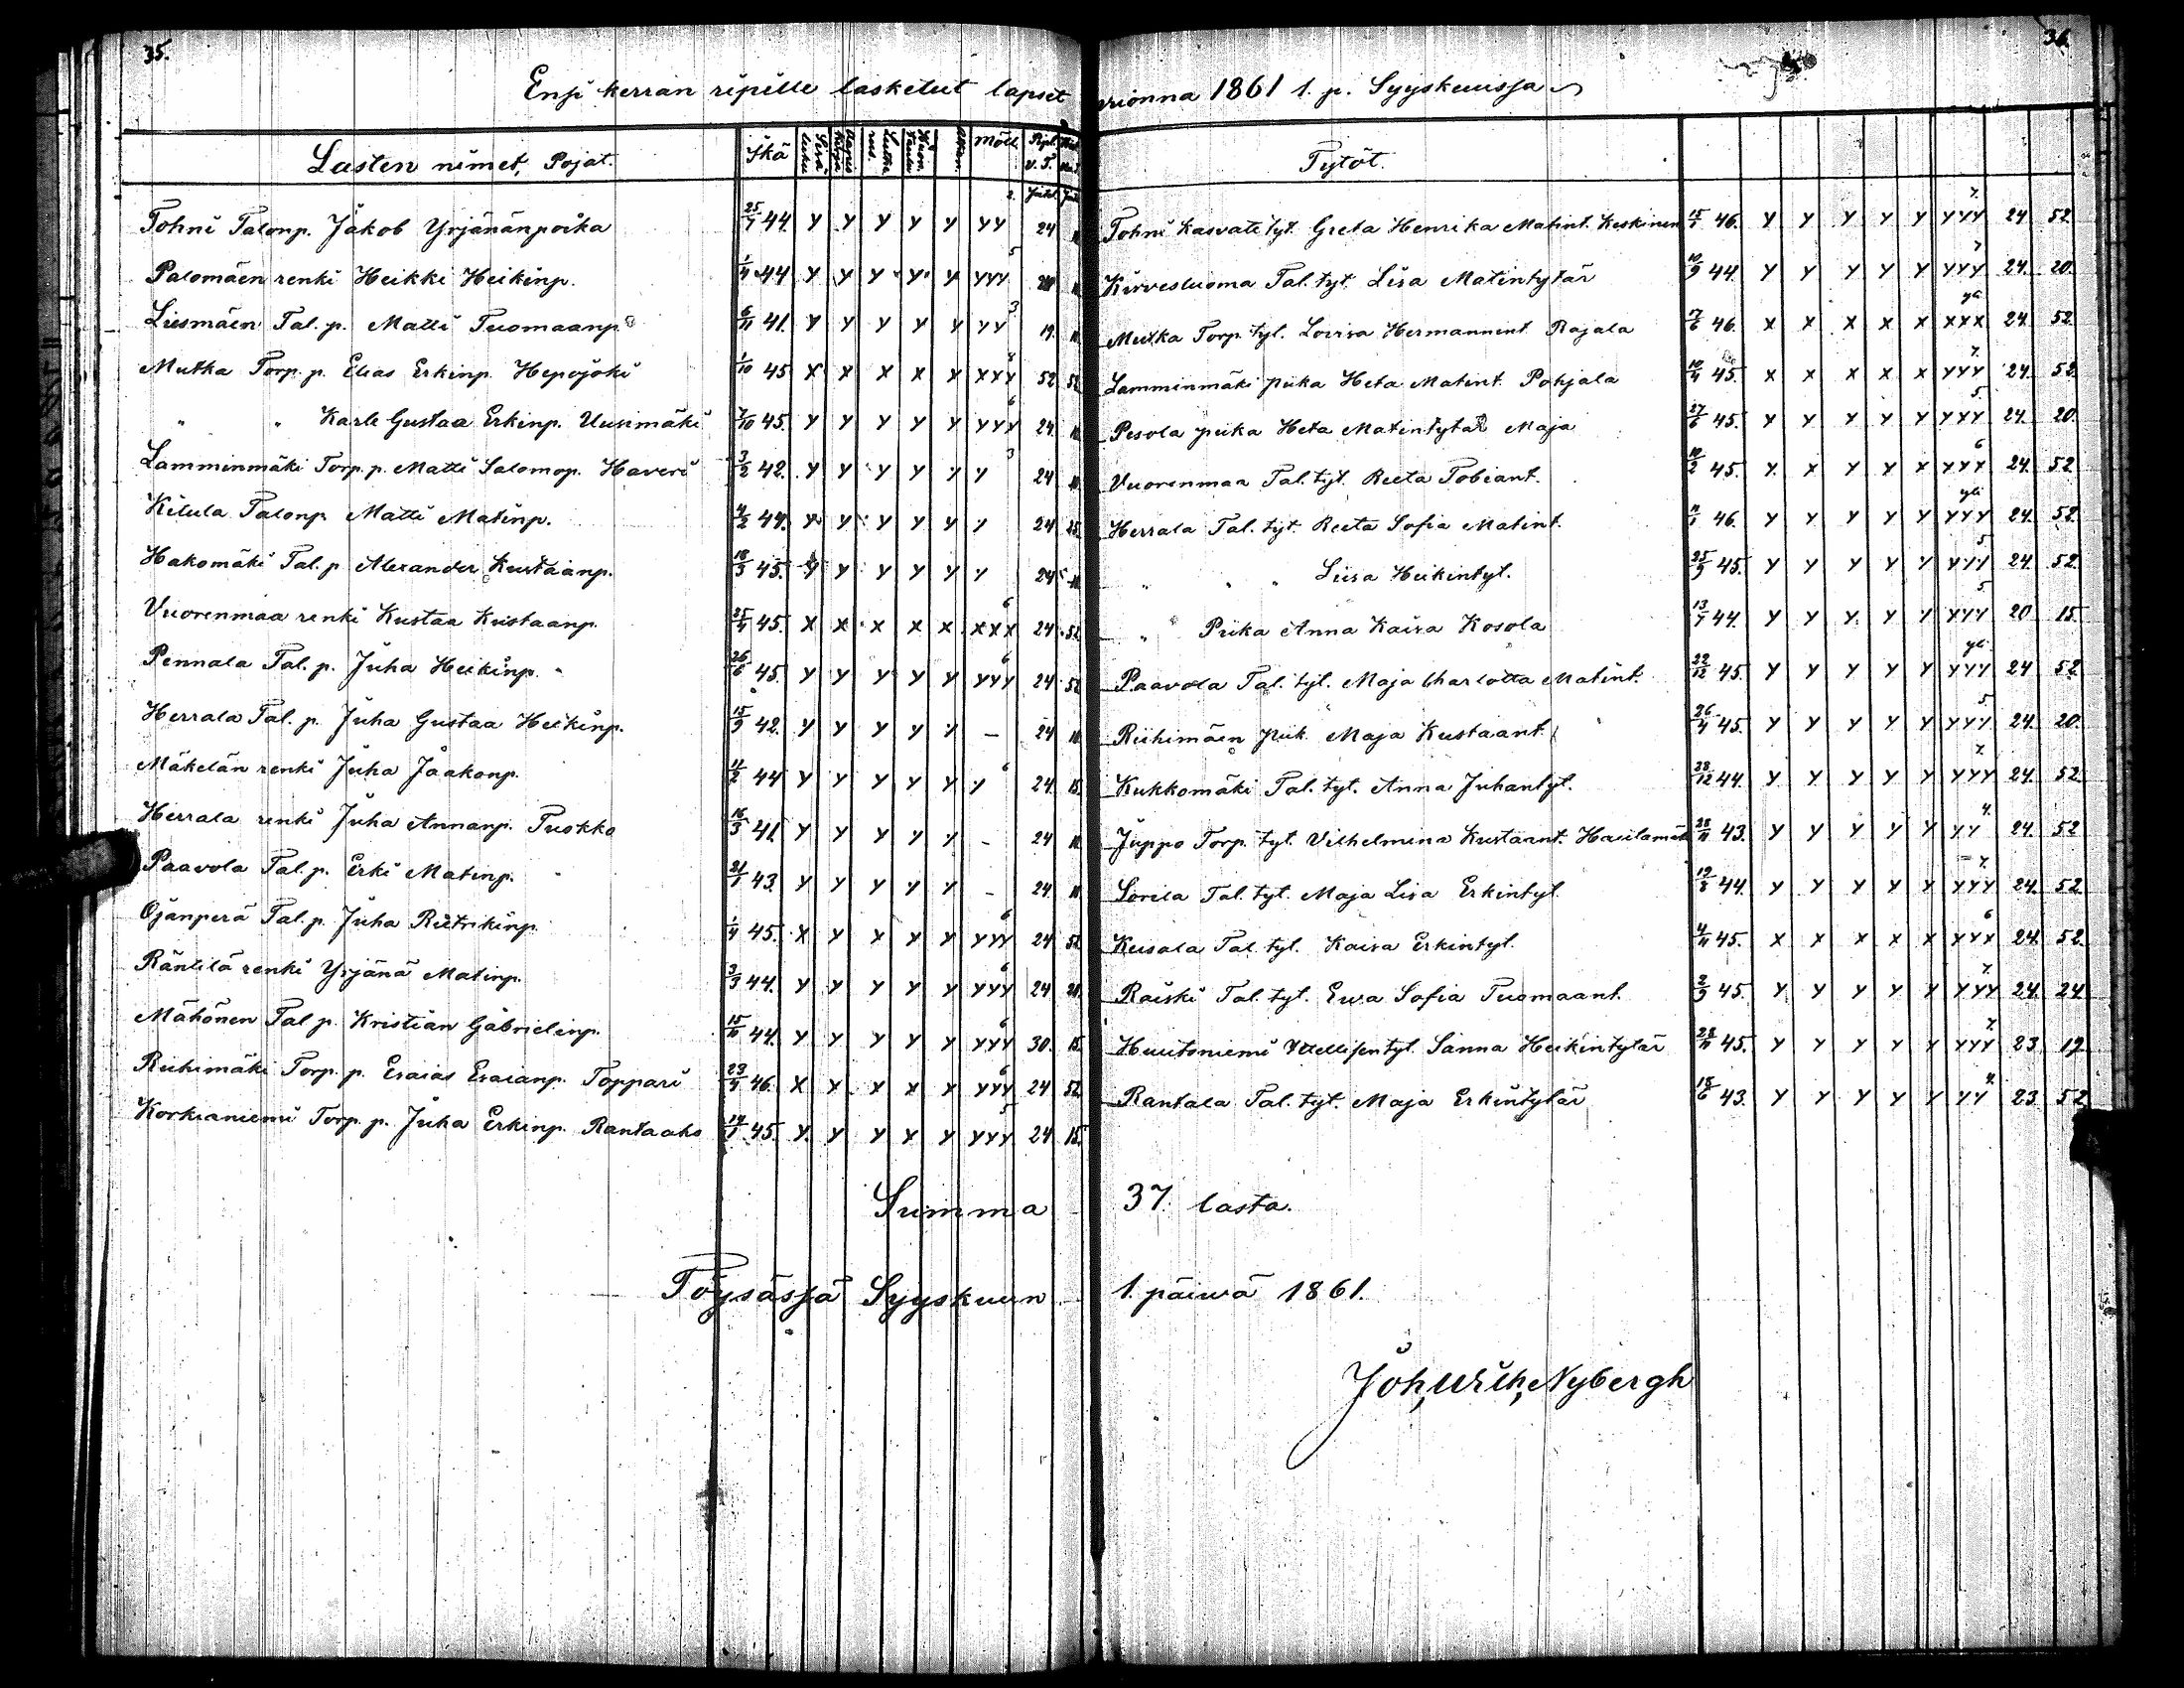 35.
Ensi kerran ripille lasketut lapset
Lasten nimet, Pojat. Ikä Möll.
Tohni Talonp. Jakob Yrjänänpoika 25/7 44. y y y y y yy 24
Palomäen renki Heikki Heikinp. 1/4 44 y y y y y yyy 5
Liesmäen Tal. p. Matti Tuomaanp. 6/11 41. y y y y y yy 3 19.
Mutka Torp. p. Elias Erkinp. Hepojoki 1/10 45 x x x x x xxx 52 52
" " Karle Gustaa Erkinp. Uusimäki 7/10 45. y y y y y yyy 6 24
Lamminmäki Torp. p. Matti Salomop. Haveri 3/2 42. y y y y y y 3 24
Kitula Talonp. Matti Matinp. 4/2 44. y y y y y y 24
Hakomäki Tal. p. Alexander Kustaanp. 18/3 45. y y y y y y 24
Vuorenmaa renki Kustaa Kustaanp. 25/4 45. x x x x x xxx 6 24 52
Pennala Tal. p. Juha Heikinp. 26/6 45. y y y y y yyy 6 24 52
Herrala Tal. p. Juha Gustaa Heikinp. 15/9 42. y y y y y — 24
Mäkelän renki Juha Jaakonp. 11/2 44 y y y y y y 6 24. 15.
Herrala renki Juha Annanp. Tuokko 16/3 41. y y y y y - 24
Paavola Tal. p. Erki Matinp. 21/1 43. y y y y y - 24.
Ojanperä Tal. p. Juha Rietrikinp. 1/4 45. x y y y y yyy 6 24 52
Räntilä renki Yrjänä Matinp. 3/3 44. y y y y y yyy 6 24
Mähönen Tal. p. Kristian Gabrielinp. 15/10 44. y y y y y yyy 6 30. 15.
Riihimäki Torp. p. Esaias Esaianp. Toppari 23/4 46. x x x x x yyy 6 24 52
Korkianiemi Torp. p. Juha Erkinp. Rantaaho 14/1 45. y y y y y yyy 5 24 15.
Summa
Töysässä Syyskuun
36.
vuonna 1861 1. p. Syyskuussa
Tytöt.
Tohni kasvatti tyt. Greta Henrika Matint. Keskinen 15/1 46. y y y y y yyy 7. 24 52.
Kirvesluoma Tal. tyt. Lisa Matintytär 10/9 44. y y y y y yyy 7 24. 20.
Mutka Torp. tyt. Lovisa Hermannint. Rajala 17/6 46. x x x x x xxx yli 24. 52.
Lamminmäki piika Heta Matint. Pohjala 10/4 45. x x x x x yyy 7. 24. 52.
Pesola piika Heta Matintytär Maja 27/6 45. y y y y y yyy 5. 24. 20.
Vuorenmaa Tal. tyt. Reeta Tobiant. 10/2 45. y x y y x yyy 6 24. 52
Herrala Tal. tyt. Reeta Sofia Matint. 11/1 46. y y y y y yyy yli 24. 52.
" " Liisa Heikintyt. 25/9 45. y y y y y yyy 5 24. 52.
" Piika Anna Kaisa Kosola 13/7 44. y y y y y yyy 5. 20 15.
Paavola Tal. tyt. Maja Charlotta Matint. 22/12 45. y y y y y yyy yli 24 52
Riihimäen piik. Maja Kustaant. 26/4 45. y y y y y yyy 5. 24. 20.
Kukkomäki Tal. tyt. Anna Juhantyt. 28/12 44. y y y y y yyy 7. 24. 52.
Juppo Torp. tyt. Vilhelmina Kustaant. 28/11 43. y y y y y yy 4. 24. 52
Sorila Tal. tyt. Maja Lisa Erkintyt. 19/8 44. y y y y y yyy 7. 24. 52
Keisala Tal. tyt. Kaisa Erkintyt. 4/11 45. x x x x x xxx 6 24. 52.
Raiski Tal. tyt. Ewa Sofia Tuomaant. 2/9 45. y y y y y yyy 7. 24. 24
Huutoniemi Itellisen tyt. Sanna Heikintytär 28/11 45. y y y y y yyy 7. 23. 19.
Rantala Tal. tyt. Maja Erkintytär 18/6 43. y y y y y yy 4. 23. 52
37. lasta.
1. päivä 1861.
Joh, Ulrik, Nybergh